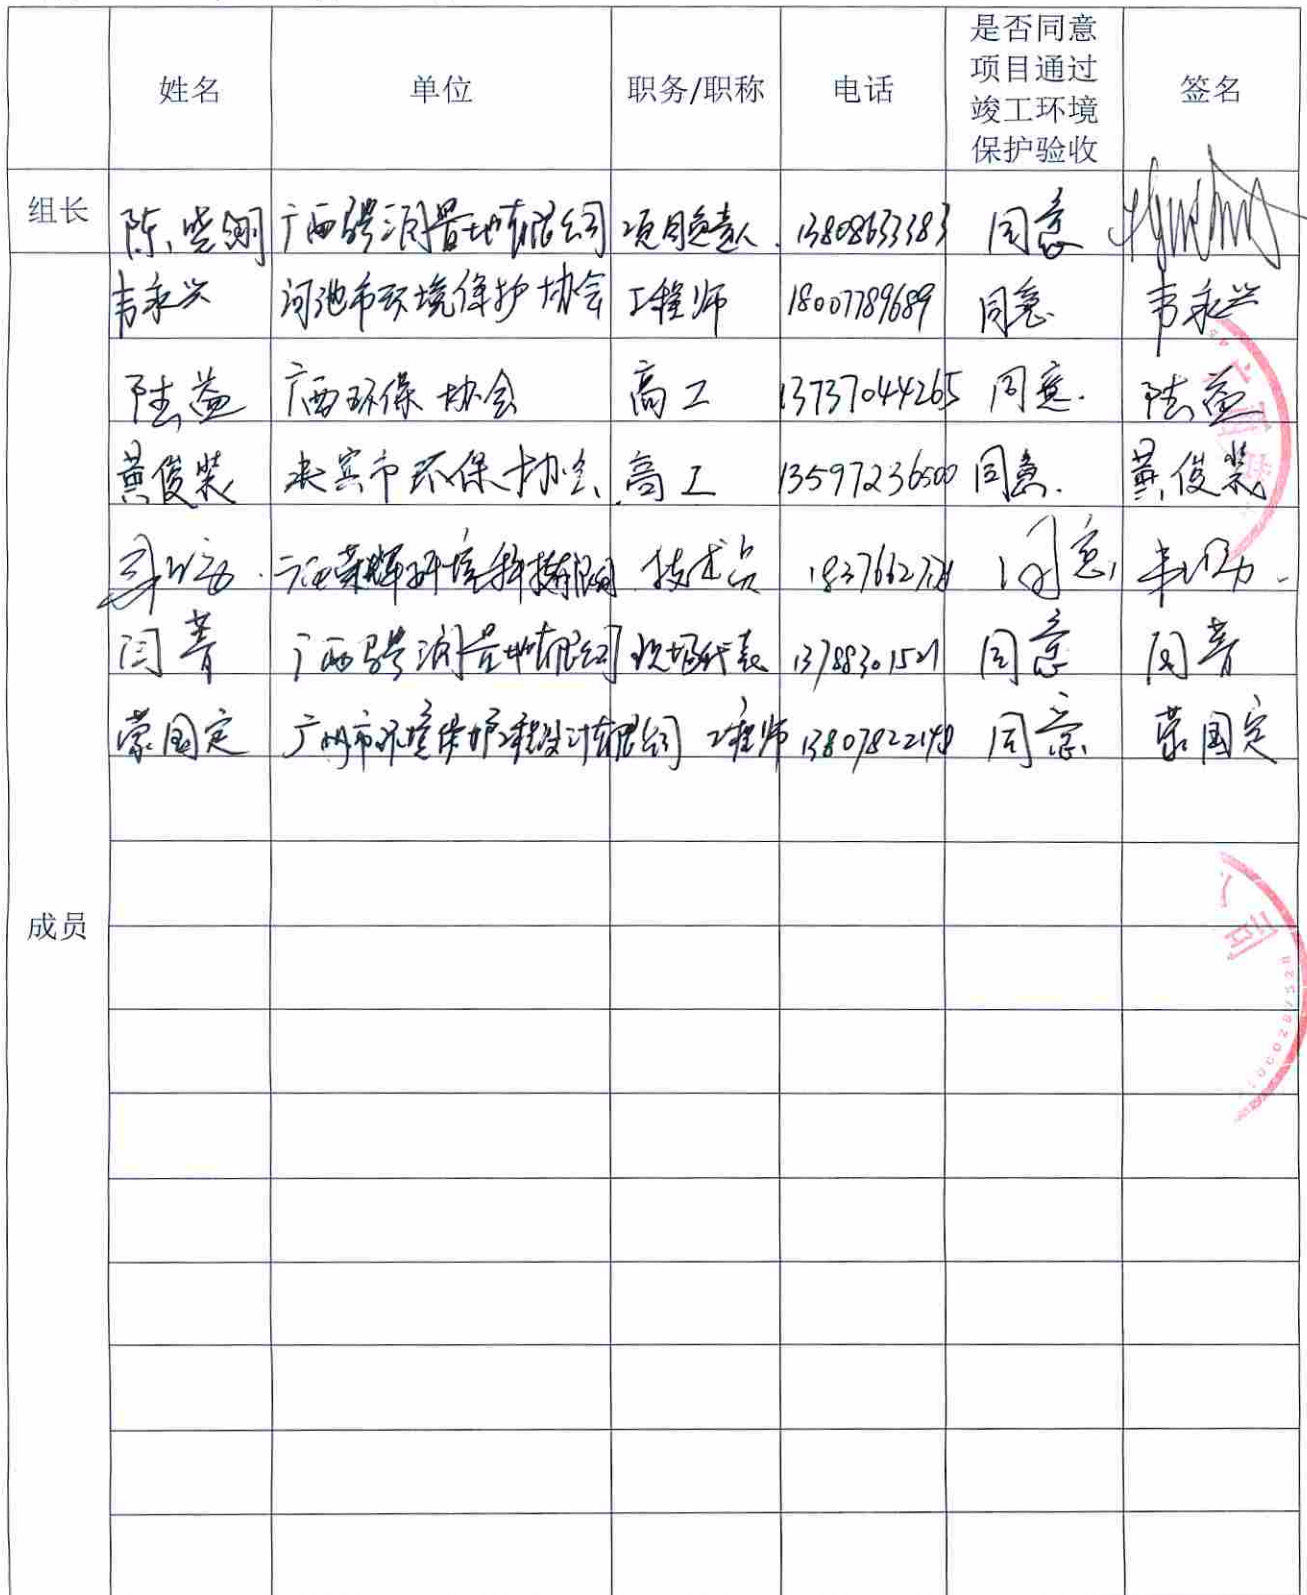 姓名 单位 职务/职称 电话 是否同意项目通过竣工环境保护验收 签名
组长 陈 广西 润置地有限公司 项目负责人 13808633383 同意
韦永兴 河池市环境保护协会 工程师 18007789689 同意 韦永兴
陆益 广西环保协会 高工 13737044265 同意. 陆益
黄俊裝 来宾市环保协会 高工 13597236500 同意. 黄俊裝
技术员 同意
闫菁 广西 润置地有限公司 现场代表 13788301521 同意 闫菁
蒙国定 广州市环境保护工程设计有限公司 工程师 13807822148 同意 蒙国定
成员
司